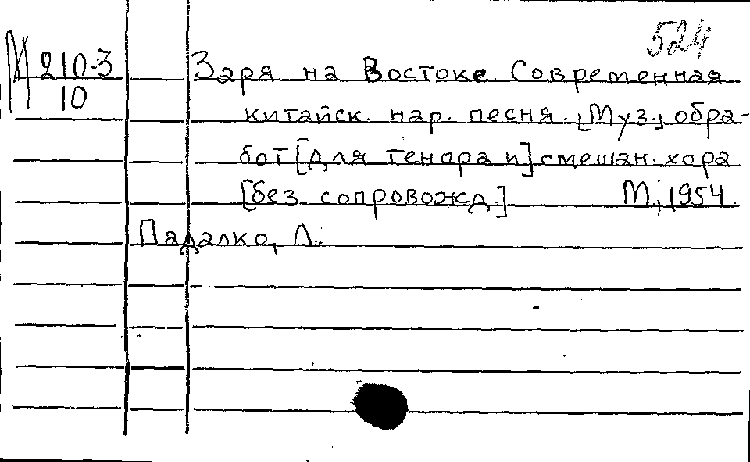 524
М 210-3
10
Заря на Востоке. Современная
китайск. нар. песня. [Муз.] обра-
бот [для тенора и] смешан. хора
[без сопровожд.] М., 1954.
Падалко, Л.